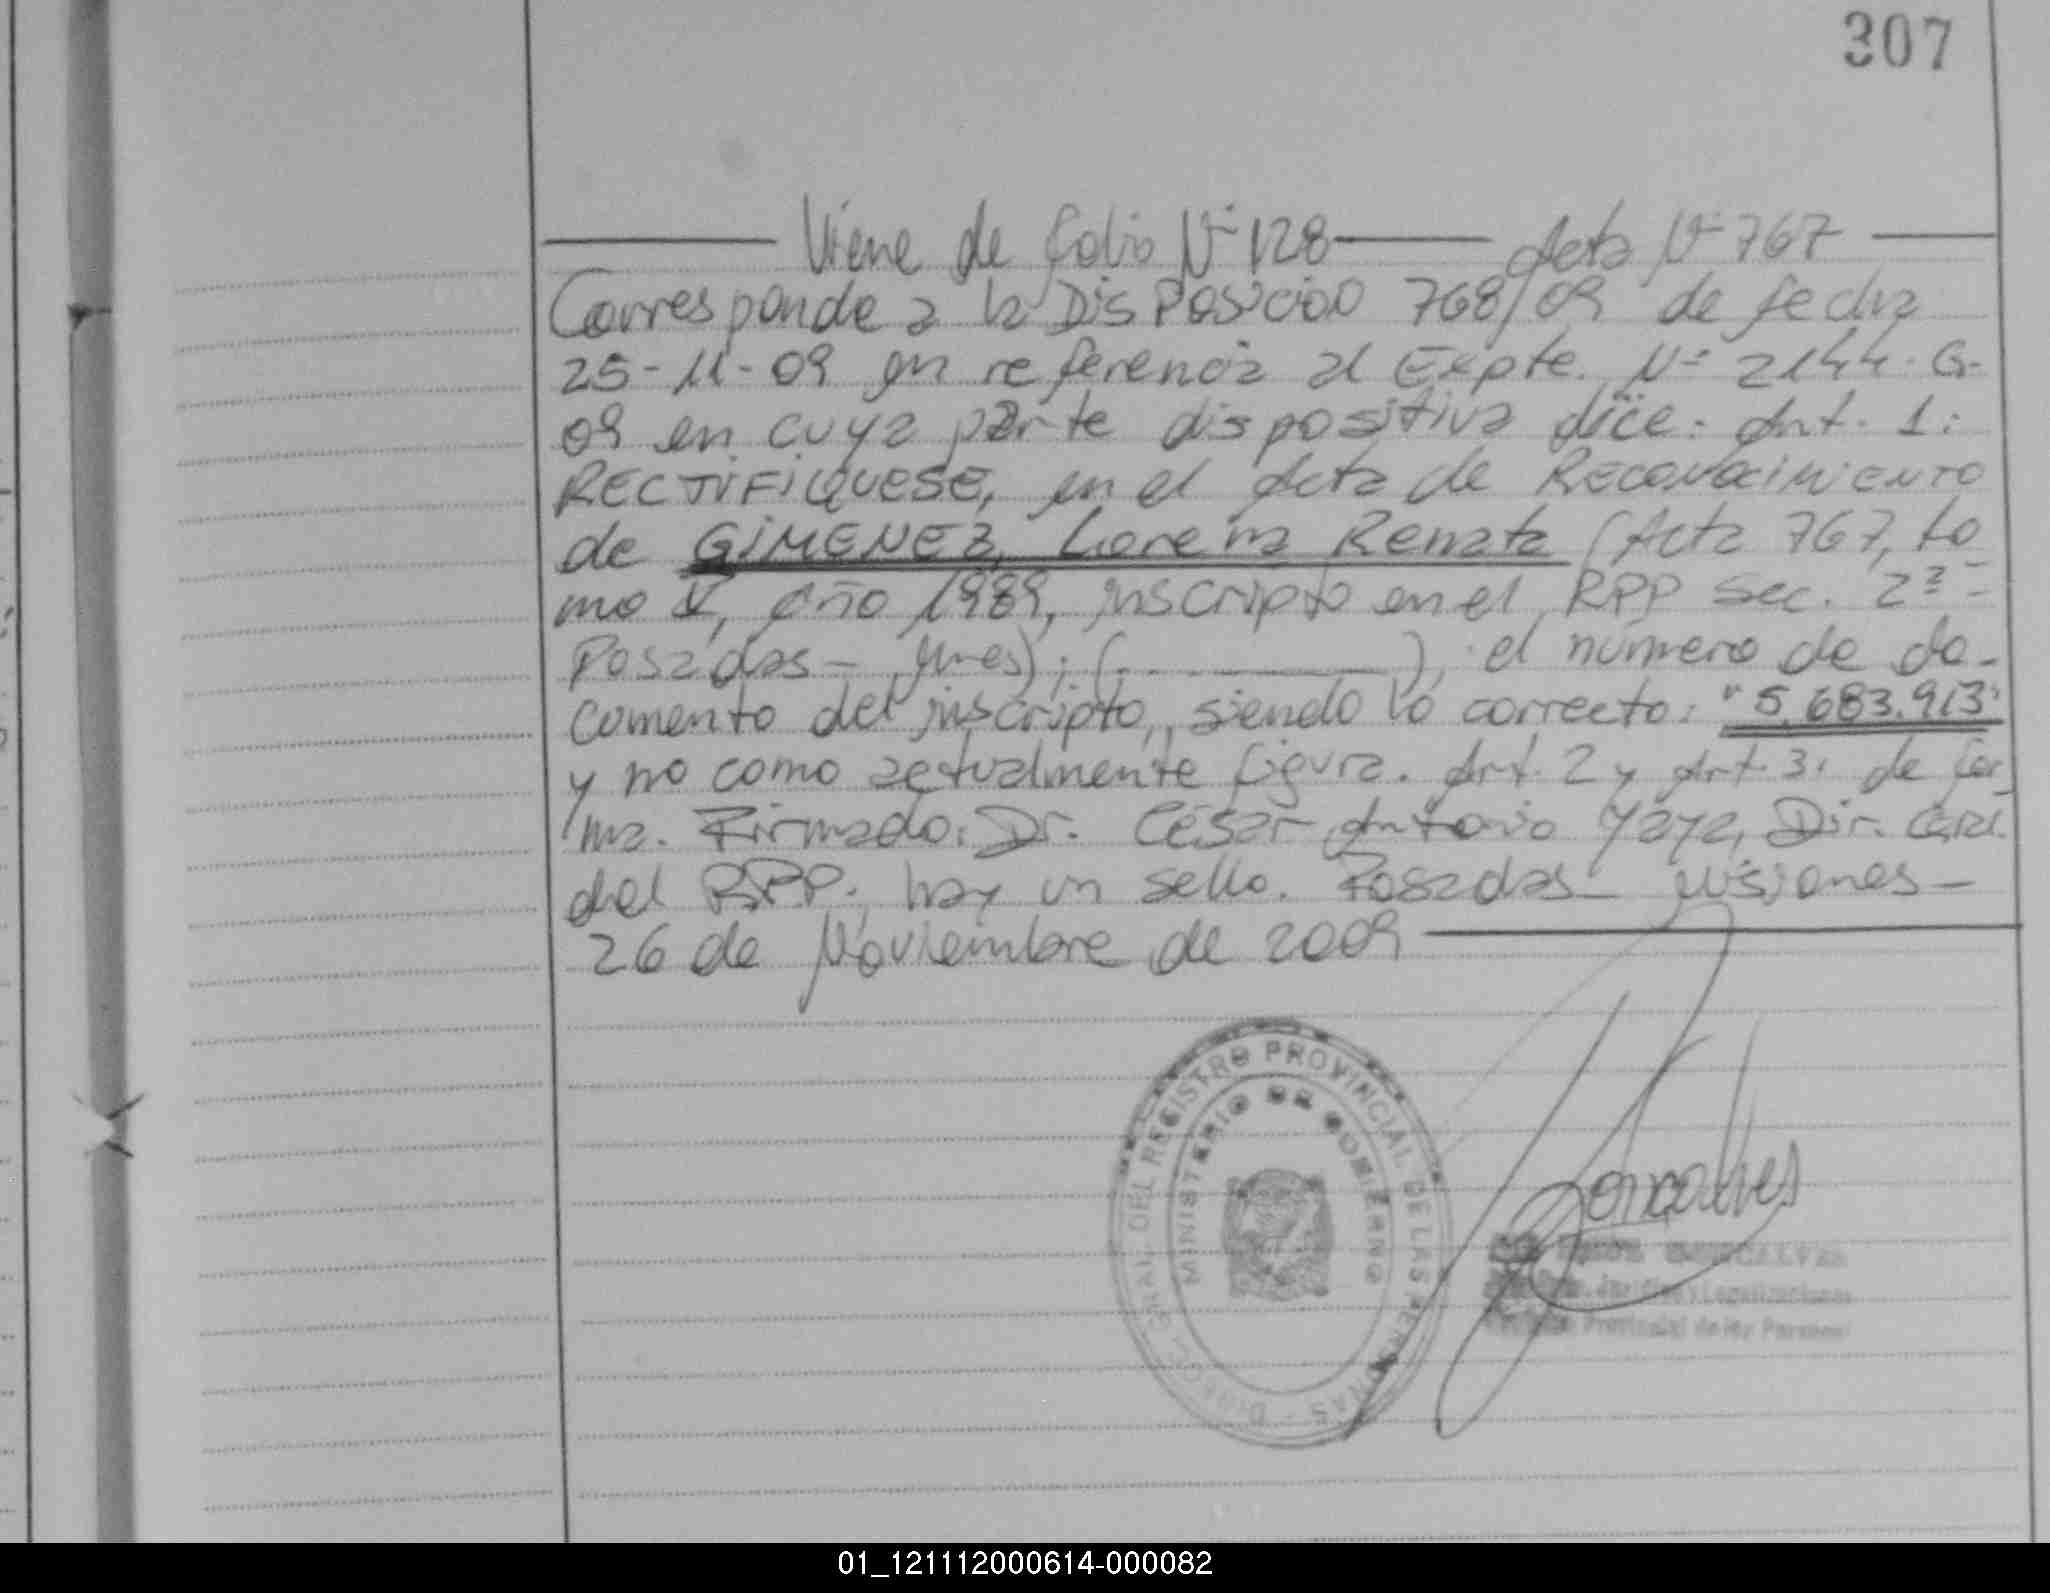 307
Viene de folio Nº 128 Acta Nº 767
Corresponde a la Disposicion 768/09 de fecha
25-11-09 en referencia al Expte. Nº 2144-G-
09 en cuya parte dispositiva dice: Art. 1:
RECTIFIQUESE, en el Acta de Reconocimiento
de GIMENEZ, Lorena Renata (Acta 767, to
mo V, año 1989, inscripto en el RPP Sec. 2ª -
Posadas - Mnes); ( ), el número de do-
cumento del inscripto, siendo lo correcto: "5.683.913"
y no como actualmente figura. Art. 2 y Art. 3: de for
ma. Firmado: Dr. César Antonio Yaya, Dir. Gral.
del RPP. hay un sello. Posadas - Misiones -
26 de Noviembre de 2009
DIRECC. GRAL. DEL REGISTRO PROVINCIAL DE LAS PERSONAS
MINISTERIO DE GOBIERNO
Goncalves
Jurídica y Legalizaciones
Provincial de las Personas
01_121112000614-000082